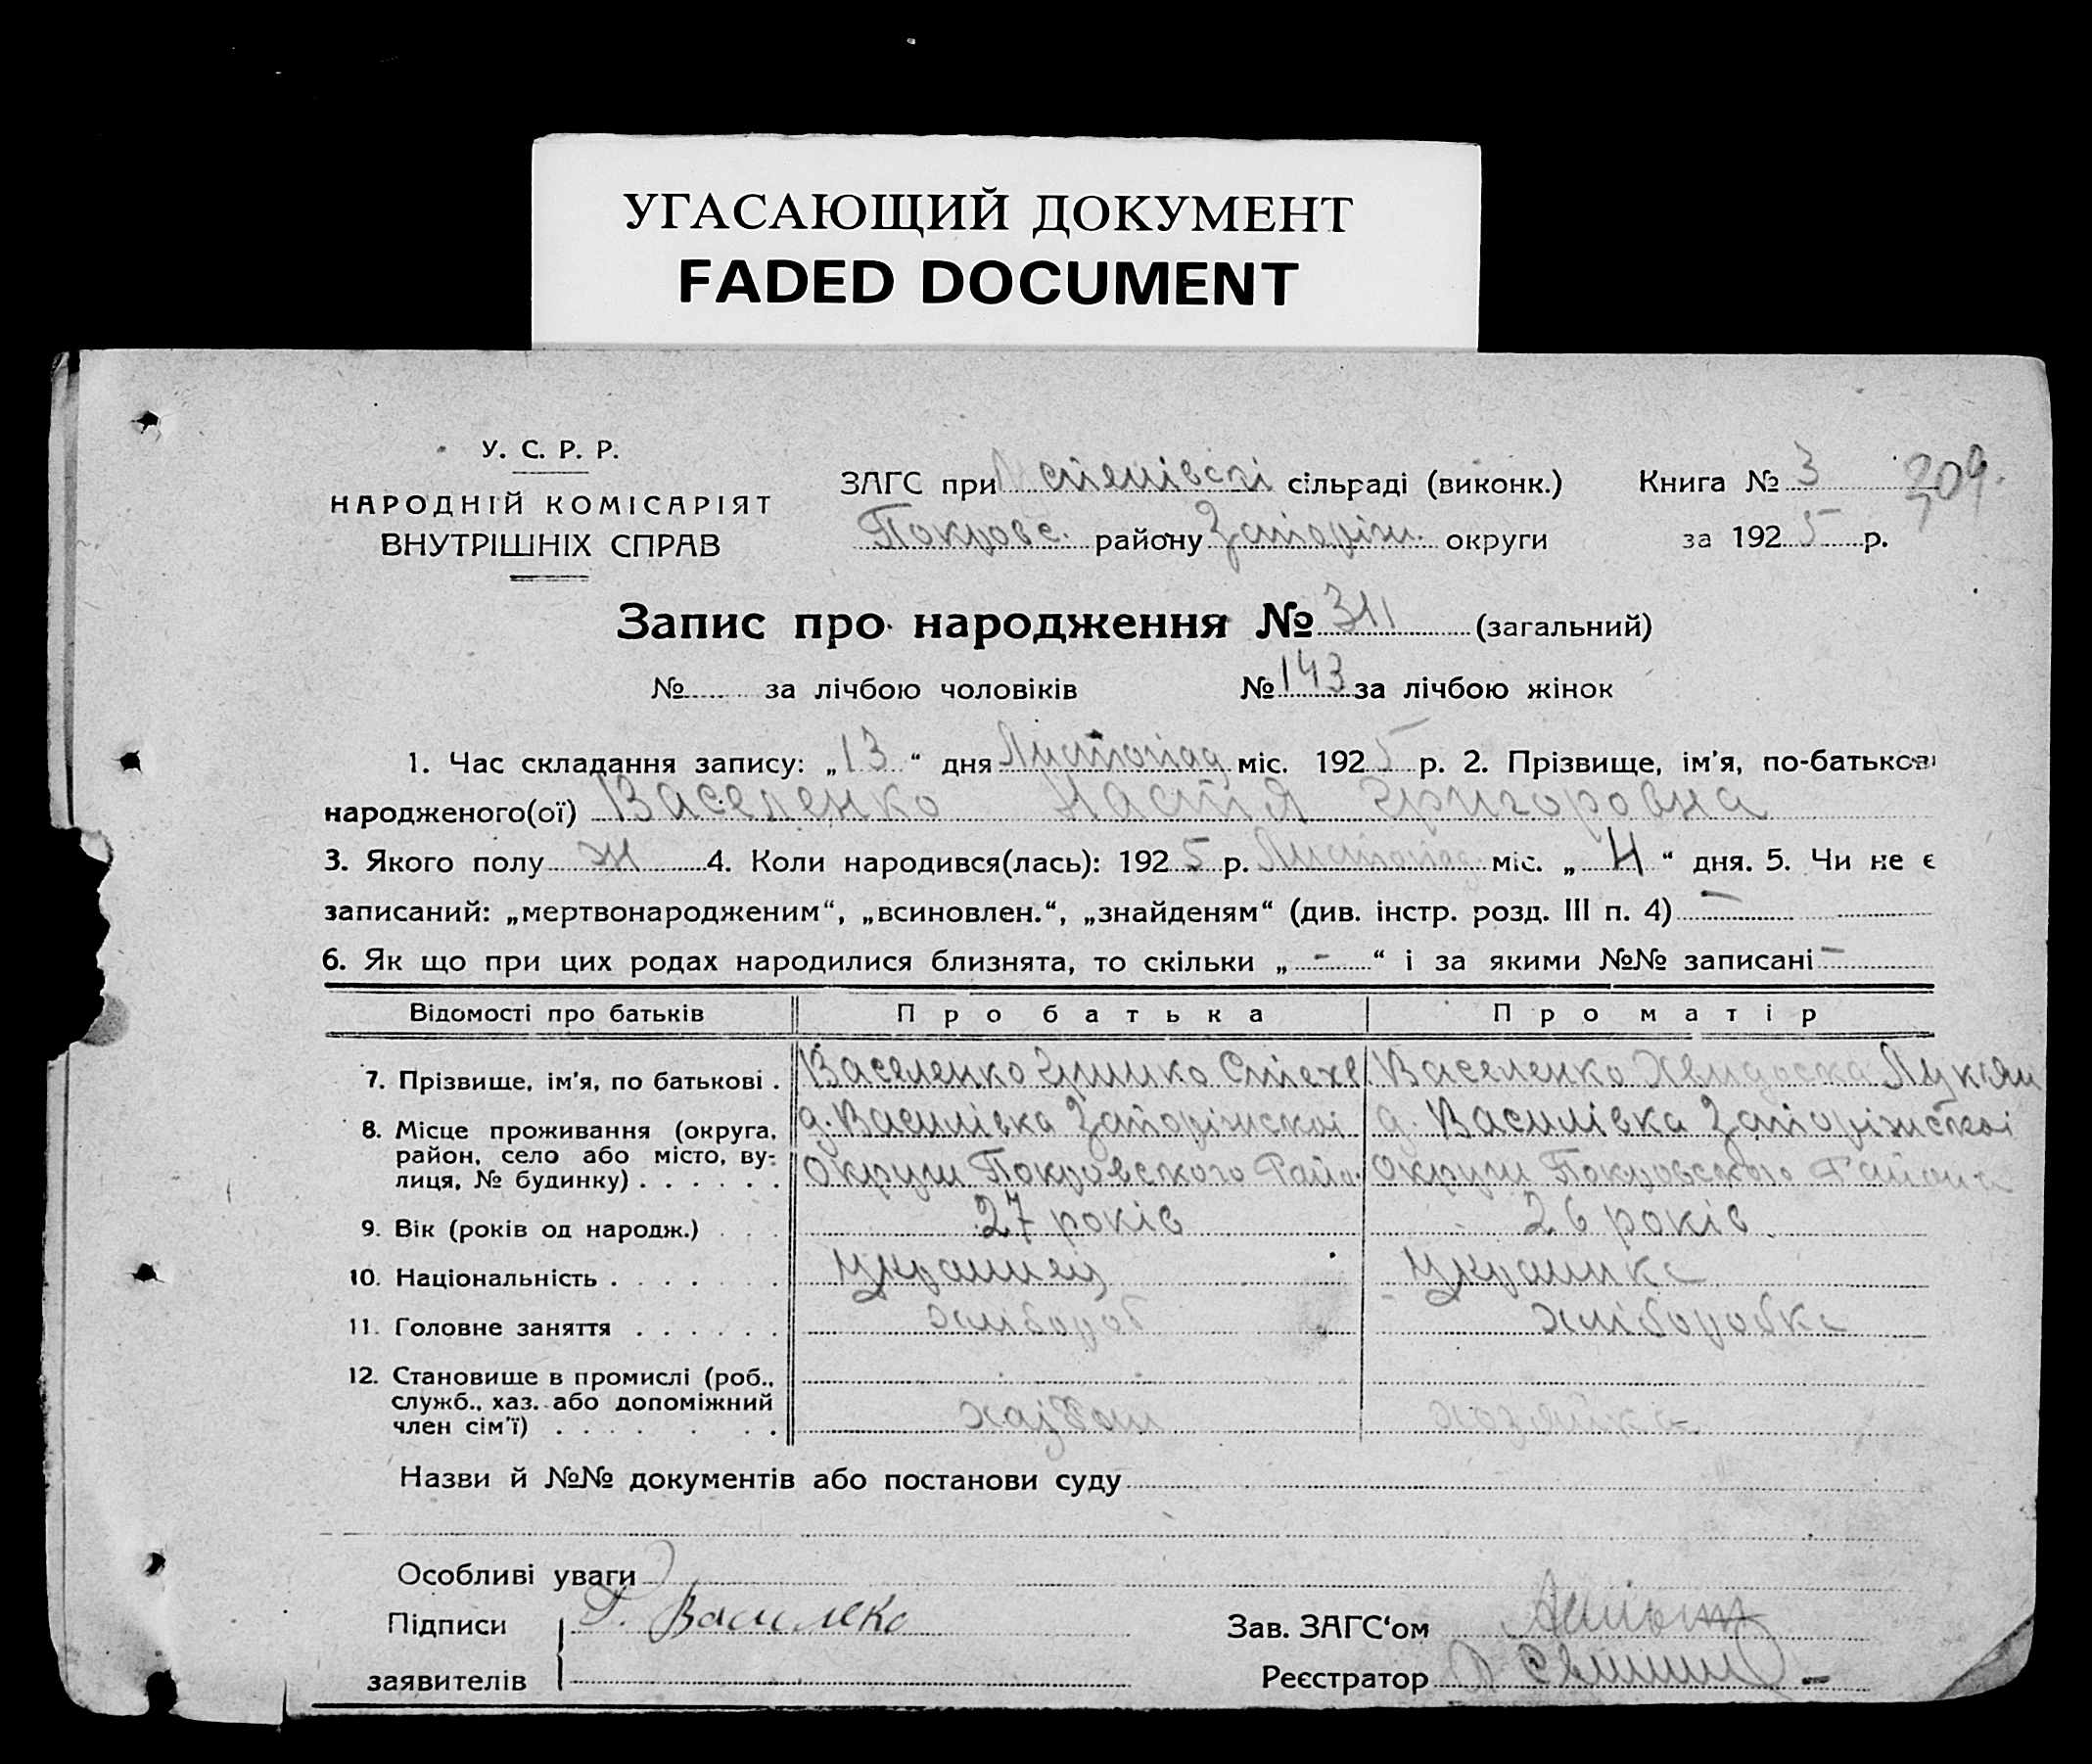 УГАСАЮЩИЙ ДОКУМЕНТ
FADED DOCUMENT
У. С. Р. Р.
НАРОДНІЙ КОМІСАРІЯТ
ВНУТРІШНІХ СПРАВ
ЗАГС при сільраді (виконк.)
Покровс. району Запоріж. округи
Книга № 3
309.
за 1925 р.
Запис про народження № 311 (загальний)
№ за лічбою чоловіків № 143 за лічбою жінок
1. Час складання запису: „13“ дня Листопад міс. 1925 р. 2. Прізвище, ім'я, по-батькові
народженого(ої) Василенко Настя Григоровна
3. Якого полу ж 4. Коли народився(лась): 1925 р. Листопад міс. „4“ дня. 5. Чи не є
записаний: „мертвонародженим“, „всиновлен.“, „знайденям“ (див. інстр. розд. III п. 4) —
6. Як що при цих родах народилися близнята, то скільки „-“ і за якими №№ записані -
Відомості про батьків Про батька Про матір
7. Прізвище, ім'я, по батькові . Васеленко Гришко Васеленко Лукян
8. Місце проживання (округа, район, село або місто, вулиця, № будинку) . . . . . .
д. Василівка Запоріжскоі д. Василівка Запоріжскоі
округи Покровского Райо. округи Покровского Района
9. Вік (років од народж.) . . . 27 років 26 років
10. Національність . . . . . . . Украинец Украинка
11. Головне заняття . . . . . . хлібороб хлібородка
12. Становище в промислі (роб.,
служб., хаз. або допоміжний
член сім'ї) . . . . . . . хозяйка
Назви й №№ документів або постанови суду
Особливі уваги
Підписи Г. Василеко
заявителів
Зав. ЗАГС'ом
Реєстратор